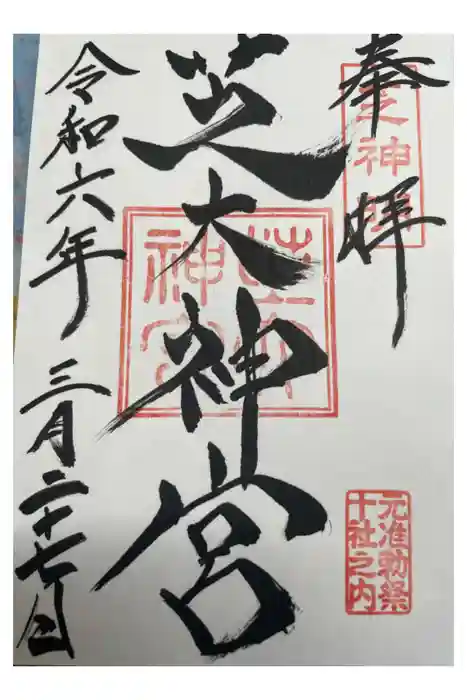 奉拝
芝大神宮
令和六年三月二十七日
元准勅祭
十社之内
芝大
神宮